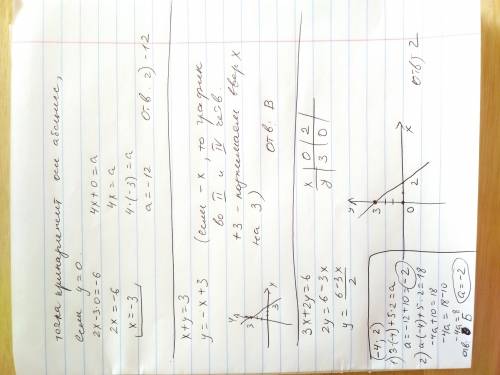 точка принадлежит оси абсцисс,
если y=0.
2x-3·0=-6
2x=-6
x=-3
4x+0=a
4x=a
4·(-3)=a
a=-12
отв. 2) -12
x+y=3
y=-x+3 (если -x, то график
во II и IV четв.
+3 - поднимаем вверх
на 3)
y
3
3
x
отв: В
3x+2y=6
2y=6-3x
y=6-3x/2
x|0|2
y|3|0
y
3
0
2
x
отв: 2
(-4;2)
1) 3·(-4)+5·2=a
a=-12+10=-2
2) a·(-4)+5·2=18
-4a+10=18
-4a=18-10
-4a=8
a=-2
отв Б